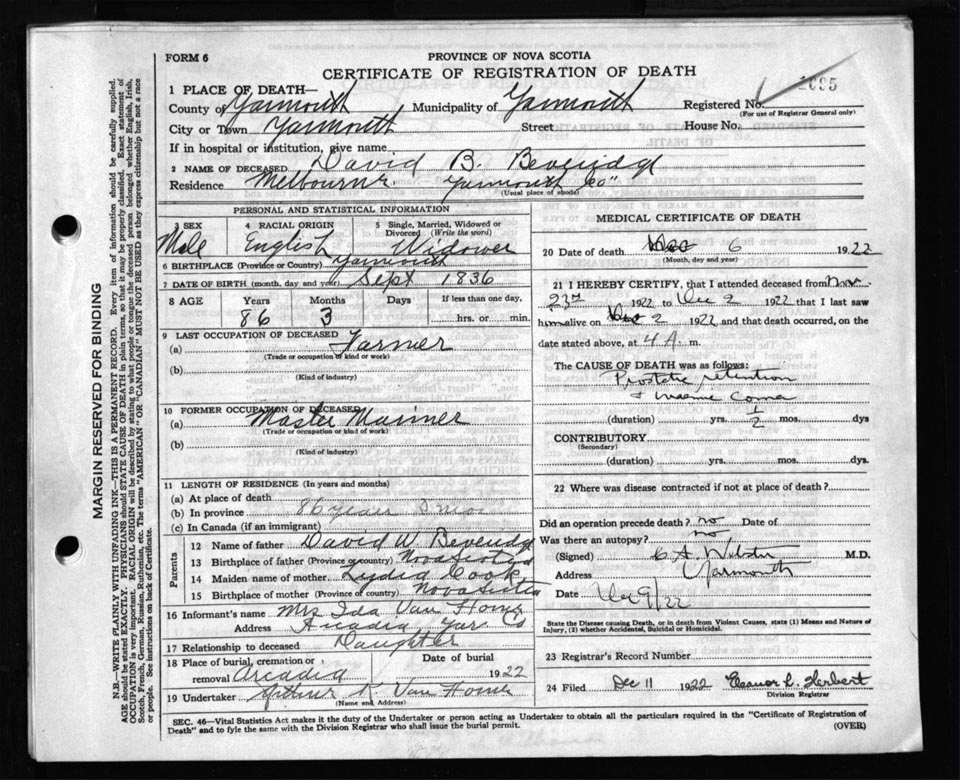 FORM 6
PROVINCE OF NOVA SCOTIA
CERTIFICATE OF REGISTRATION OF DEATH
1 PLACE OF DEATH—
County of Yarmouth Municipality of Yarmouth Registered No. 1695
(For use of Registrar General only)
City or Town Yarmouth Street House No.
If in hospital or institution, give name
2 NAME OF DECEASED David B. Beveridge
Residence Melbourne Yarmouth Co"
(Usual place of abode)
PERSONAL AND STATISTICAL INFORMATION
3 SEX
Male
4 RACIAL ORIGIN
English
5 Single, Married, Widowed or Divorced (Write the word)
Widower
6 BIRTHPLACE (Province or Country) Yarmouth
7 DATE OF BIRTH (month, day and year) Sept 1836
8 AGE Years Months Days If less than one day,
86 3 hrs. or min.
9 LAST OCCUPATION OF DECEASED
(a) Farmer
(Trade or occupation or kind or work)
(b)
(Kind of industry)
10 FORMER OCCUPATION OF DECEASED
(a) Master Mariner
(Trade or occupation or kind of work)
(b)
(Kind of industry)
11 LENGTH OF RESIDENCE (In years and months)
(a) At place of death
(b) In province 86 years 3 mos
(c) In Canada (if an immigrant)
Parents
12 Name of father David W. Beveridge
13 Birthplace of father (Province or country) Nova Scotia
14 Maiden name of mother Lydia Cook
15 Birthplace of mother (Province or country) Nova Scotia
16 Informant's name Mrs Ida Van Horne
Address Arcadia Yar Co
17 Relationship to deceased Daughter
18 Place of burial, cremation or removal Arcadia
Date of burial
1922
19 Undertaker Arthur K. Van Horne
(Name and Address)
MEDICAL CERTIFICATE OF DEATH
20 Date of death Dec 6 1922
(Month, day and year)
21 I HEREBY CERTIFY, that I attended deceased from Nov.
23rd 1922 to Dec 2 1922 that I last saw
him alive on 2 1922 and that death occurred, on the
date stated above, at 4 A m.
The CAUSE OF DEATH was as follows:
Prostatic retention
& Uraemic Coma
(duration) yrs. 1/2 mos. dys
CONTRIBUTORY
(Secondary)
(duration) yrs. mos. dys.
22 Where was disease contracted if not at place of death?
Did an operation precede death? no Date of
Was there an autopsy? no
(Signed) C. A. Webster M.D.
Address Yarmouth
Date Dec 9/22
State the Disease causing Death, or in death from Violent Causes, state (1) Means and Nature of Injury, (2) whether Accidental, Suicidal or Homicidal.
23 Registrar's Record Number
24 Filed Dec 11 1922 Eleanor L. Herbert
Division Registrar
SEC. 46—Vital Statistics Act makes it the duty of the Undertaker or person acting as Undertaker to obtain all the particulars required in the "Certificate of Registration of
Death" and to fyle the same with the Division Registrar who shall issue the burial permit.
(OVER)
MARGIN RESERVED FOR BINDING
N.B.—WRITE PLAINLY WITH UNFADING INK—THIS IS A PERMANENT RECORD. Every item of information should be carefully supplied.
AGE should be stated EXACTLY. PHYSICIANS should STATE CAUSE OF DEATH in plain terms, so that it may be properly classified. Exact statement of
OCCUPATION is very important. RACIAL ORIGIN will be described by stating to what people or tongue the deceased person belonged whether English, Irish,
Scotch, French, German, Russian, Ruthenian, etc. The terms "AMERICAN" OR "CANADIAN" MUST NOT BE USED as they express citizenship but not a race
or people. See instructions on back of Certificate.